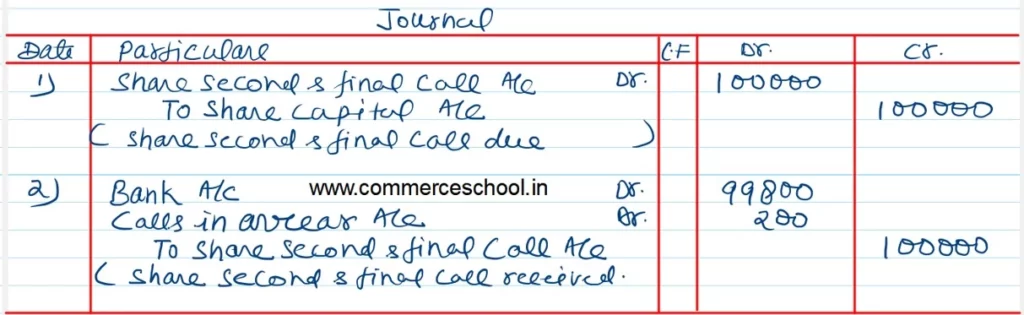 Journal
Date Particulars C.F Dr. Cr.
1) Share second & final call A/c Dr. 100000
To Share Capital A/c 100000
( Share second & final call due )
2) Bank A/c www.commerceschool.in Dr. 99800
Calls in arrear A/c Dr. 200
To Share second & final Call A/c 100000
( Share second & final call received.